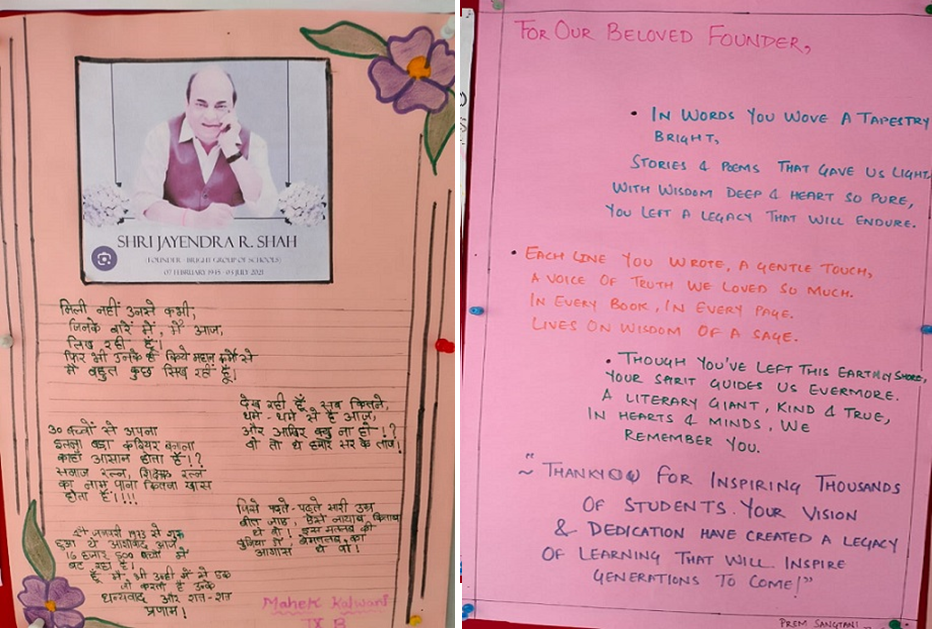 SHRI JAYENDRA R. SHAH
(FOUNDER - BRIGHT GROUP OF SCHOOLS)
07 FEBRUARY 1945 - 03 JULY 2021
मिली नहीं उनसे कभी,
जिनके बारे में, मैं आज,
लिख रही हूँ!
फिर भी उनके किये महान कर्मो से
मैं बहुत कुछ सिख रही हूँ!
देख रही हूँ सब कितने,
थमे - थमे से है आज,
और आखिर क्यु ना हो!?
वो तो थे हमारे सर के ताज!
30 बच्चों से अपना
इतना बड़ा करियर बनाना
कहाँ आसान होता है!?
समाज रत्न, शिक्षक रत्न
का नाम पाना कितना खास
होता है!!!!
जिसे पढ़ते-पढ़ते सारी उम्र
बीत जाए, ऐसे नायाब किताब
थे वो! इस मतलब की
दुनिया में बेमतलब का
थे वो!
जनवरी 1973 से शुरू
हुआ ये आशीर्वाद आज
16 हजार 500 बच्चों में
बट रहा है!
हूँ मैं भी उन्ही में से एक
जो करती है उनके
धन्यवाद और शत-शत
प्रणाम!
Mahek Kalwani
IX B
FOR OUR BELOVED FOUNDER,
• IN WORDS YOU WOVE A TAPESTRY
BRIGHT,
STORIES & POEMS THAT GAVE US LIGHT,
WITH WISDOM DEEP & HEART SO PURE,
YOU LEFT A LEGACY THAT WILL ENDURE.
• EACH LINE YOU WROTE, A GENTLE TOUCH,
A VOICE OF TRUTH WE LOVED SO MUCH.
IN EVERY BOOK, IN EVERY PAGE.
LIVES ON WISDOM OF A SAGE.
• THOUGH YOU'VE LEFT THIS EARTHLY SHORE,
YOUR SPIRIT GUIDES US EVERMORE.
A LITERARY GIANT, KIND & TRUE,
IN HEARTS & MINDS, WE
REMEMBER YOU.
~ "THANKYOU FOR INSPIRING THOUSANDS
OF STUDENTS. YOUR VISION
& DEDICATION HAVE CREATED A LEGACY
OF LEARNING THAT WILL INSPIRE
GENERATIONS TO COME!"
PREM SANGTANI